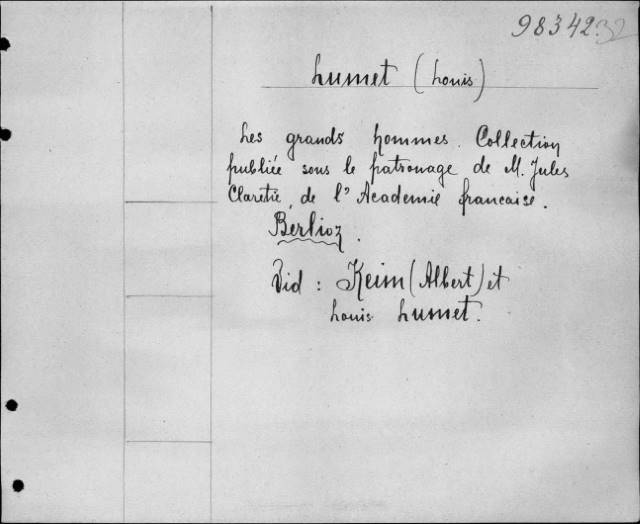 98342.32
Lumet (Louis)
Les grands hommes. Collection
publiée sous le patronage de M. Jules
Claretie, de l'Academie francaise.
Berlioz.
Vid: Keim (Albert) et
Louis Lumet.